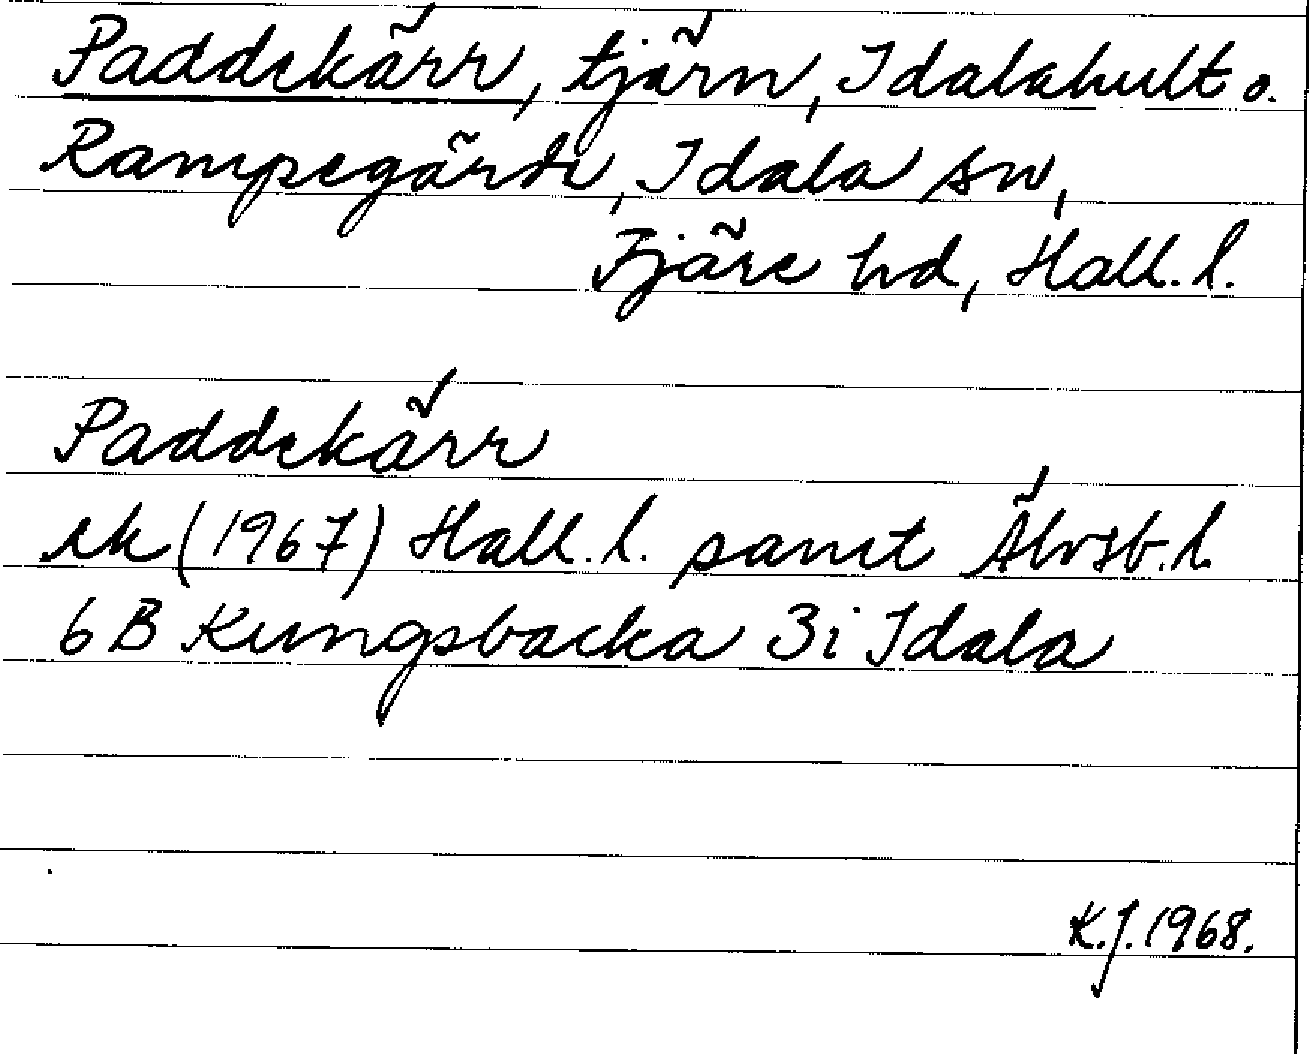 Paddekärr, tjärn, Idalahult o.
Rampegärde, Idala sn,
Fjäre hd, Hall. l.
Paddekärr
ek (1967) Hall. l. samt Älvsb. l.
6 B Kungsbacka 3i Idala
K.J. 1968.